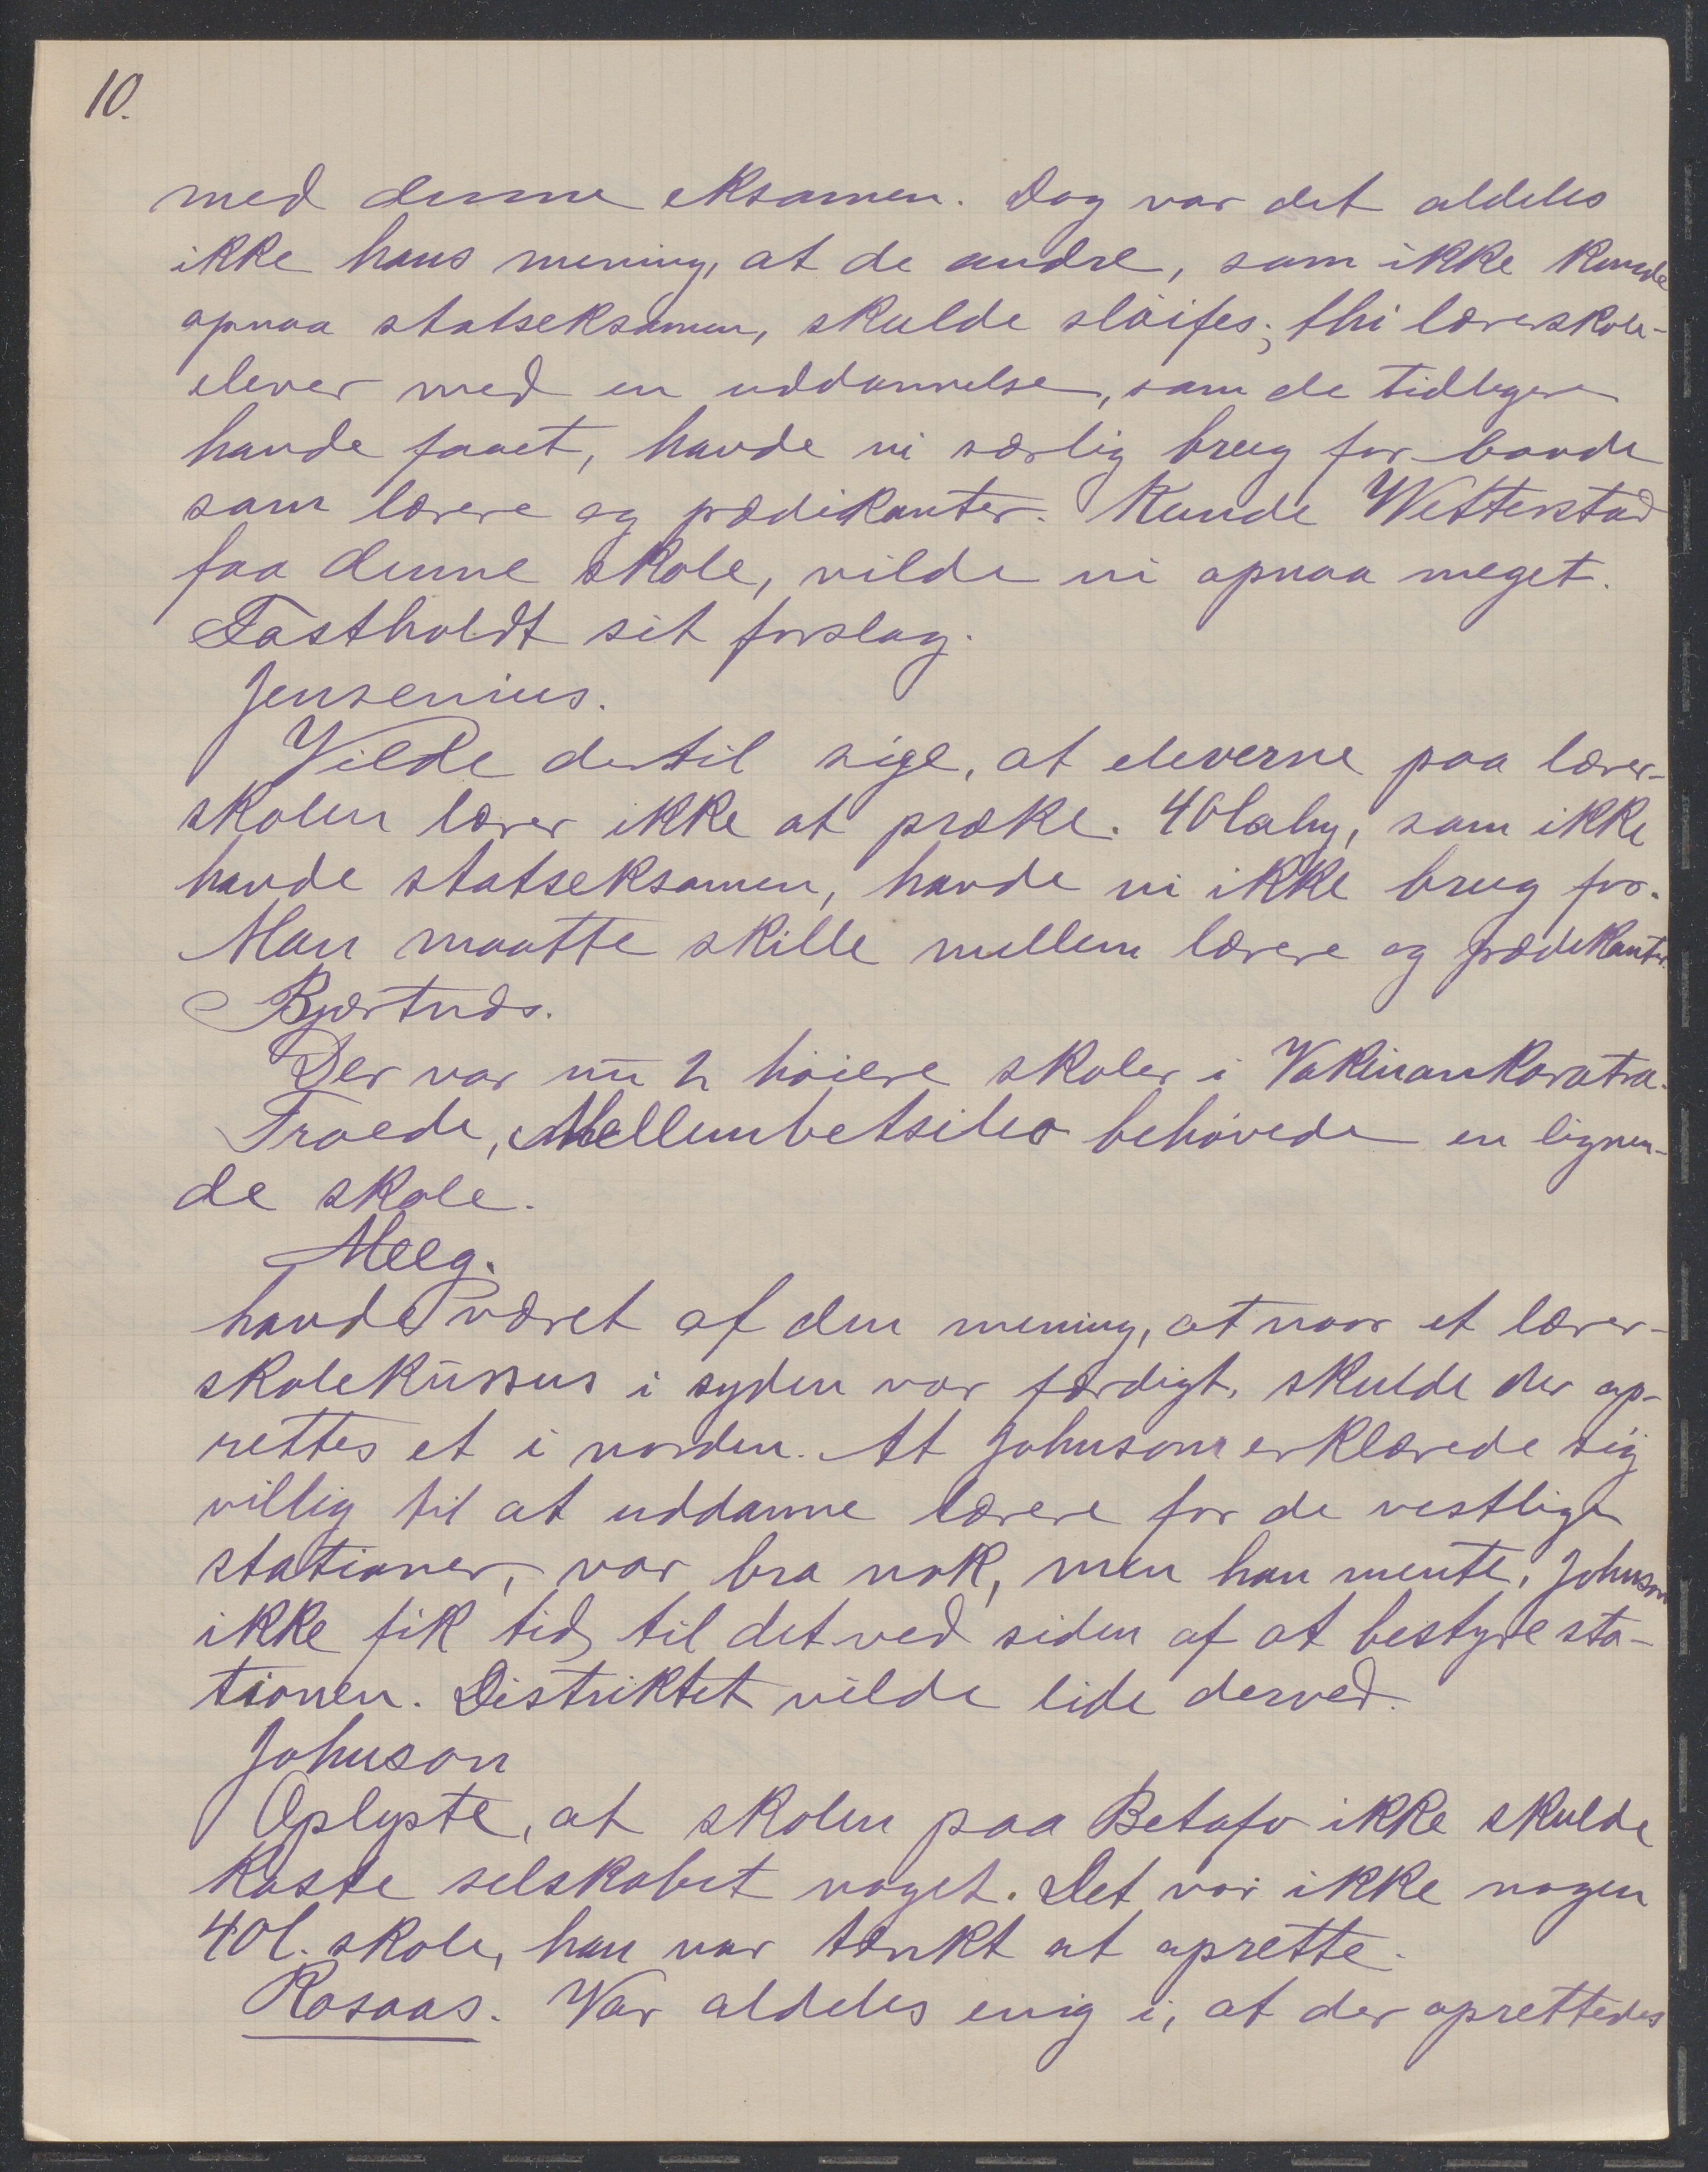 10.
med denne eksamen. Dog var det aldeles
ikke hans mening, at de andre, som ikke kunde
opnaa statseksamen, skulde sløifes; thi lærerskole-
elever med en uddannelse, som de tidligere
havde faaet, havde vi særlig brug for baade
som lærere og prædikanter. Kunde Wetterstad
faa denne skole, vilde vi opnaa meget.
Fastholdt sit forslag.
Jensenius.
Vilde dertil sige, at eleverne paa lærer-
skolen lærer ikke at præke. 40 lahy, som ikke
havde statseksamen, havde vi ikke brug for.
Man maatte skille mellem lærere og prædikanter.
Bjertnæs.
Der var nu 2 høiere skoler i Vakinankaratra.
Troede, Mellembetsileo behøvede en lignen-
de skole.
Meeg.
havde været af den mening, at naar et lærer-
skolekursus i syden var færdigt, skulde der op-
rettes et i norden. At Johnson erklærede sig
villig til at uddanne lærere for de vestlige
stationer, var bra nok, men han mente, Johnson
ikke fik tid til det ved siden af at bestyre sta-
tionen. Distriktet vilde lide derved.
Johnson
Oplyste, at skolen paa Betafo ikke skulde
koste selskabet noget. Det var ikke nogen
40 l. skole, han var tænkt at oprette.
Rosaas. Var aldeles enig i, at der oprettedes